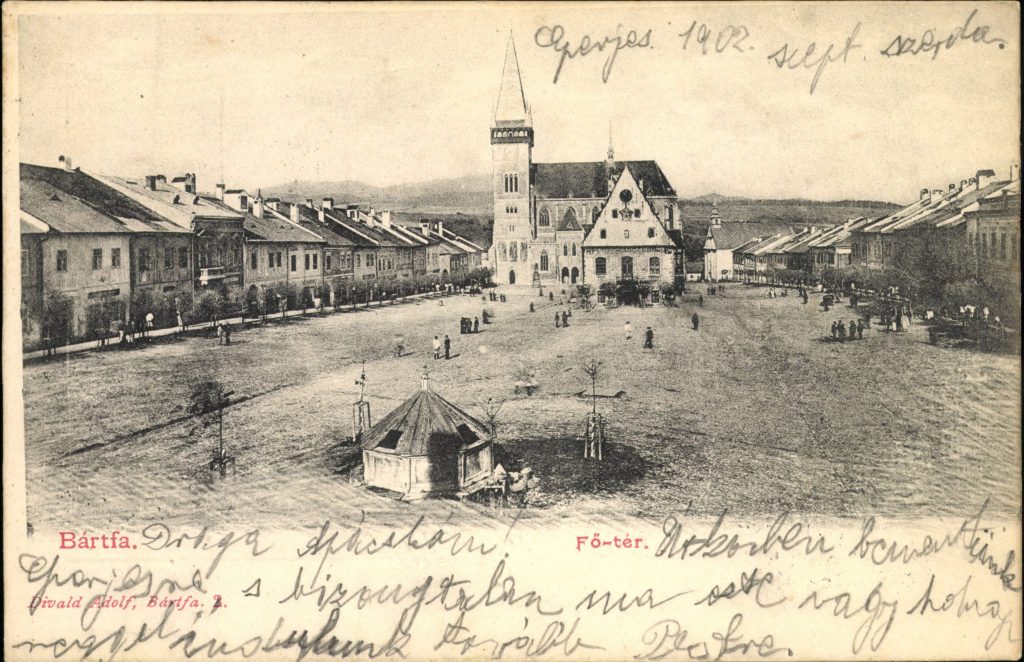 Eperjes. 1902. szept. szerda.
Bártfa. Drága Apácskám! Fő-tér. Útközben bementünk
Eperjesre s bizonytalan ma este vagy holnap
Divald Adolf, Bártfa. 2.
reggel indulunk tovább Pestre.